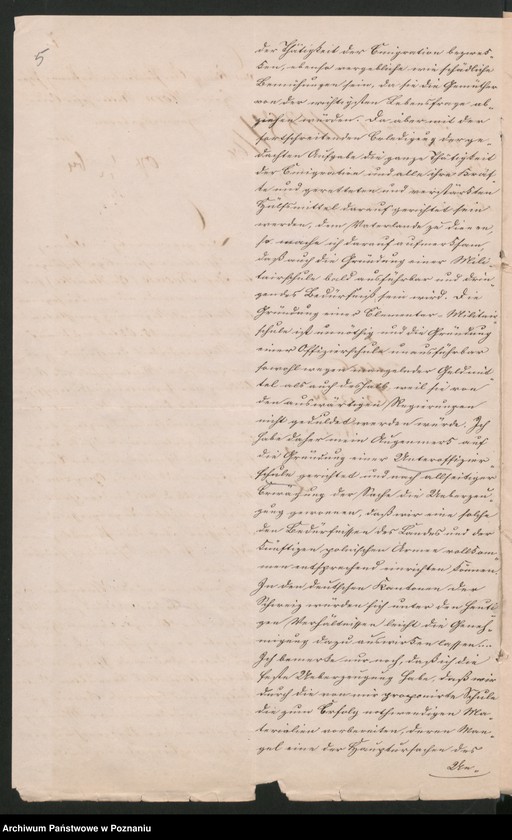 5
der Thätigkeit der Emigration bezwek-
ken, ebenso vergebliche wie schädliche
Bemühungen sein, da sie die Gemüther
von der wichtigsten Lebensfrage ab-
ziehen würden. Da aber mit der
fortschreitenden Erledigung der ge-
dachten Aufgabe die ganze Thätigkeit
der Emigration und alle ihre Kräf-
te und geretteten und verstärkten
Hülfsmittel darauf gerichtet sein
werden, dem Vaterlande zu dienen,
so mache ich darauf aufmerksam,
daß auch die Gründung einer Mili-
tairschule bald ausführbar und drin-
gendes Bedürfniß sein wird. Die
Gründung einer Elementar-Militair-
schule ist unnöthig und die Gründung
einer Offizierschule unausführbar
sowohl wegen mangelnder Geldmit-
tel als auch deshalb, weil sie von
den auswärtigen Regierungen
nicht geduldet werden würde. Ich
habe daher mein Augenmerk auf
die Gründung einer Unteroffizier-
schule gerichtet und nach allseitiger
Erwägung der Sache die Ueberzeu-
gung gewonnen, daß wir eine solche
den Bedürfnissen des Landes und der
künftigen polnischen Armee vollkom-
men entsprechend einrichten können.
In den deutschen Kantonen der
Schweiz würden sich unter den heuti-
gen Verhältnissen leicht die Geneh-
migung dazu auswirken lassen....
Ich bemerke nur noch, daß ich die
feste Ueberzeugung habe, daß wir
durch die von mir proponirte Schule
die zum Erfolg nothwendigen Ma-
terialien vorbereiten, deren Man-
gel eine der Hauptursachen des
Un-
Archiwum Państwowe w Poznaniu